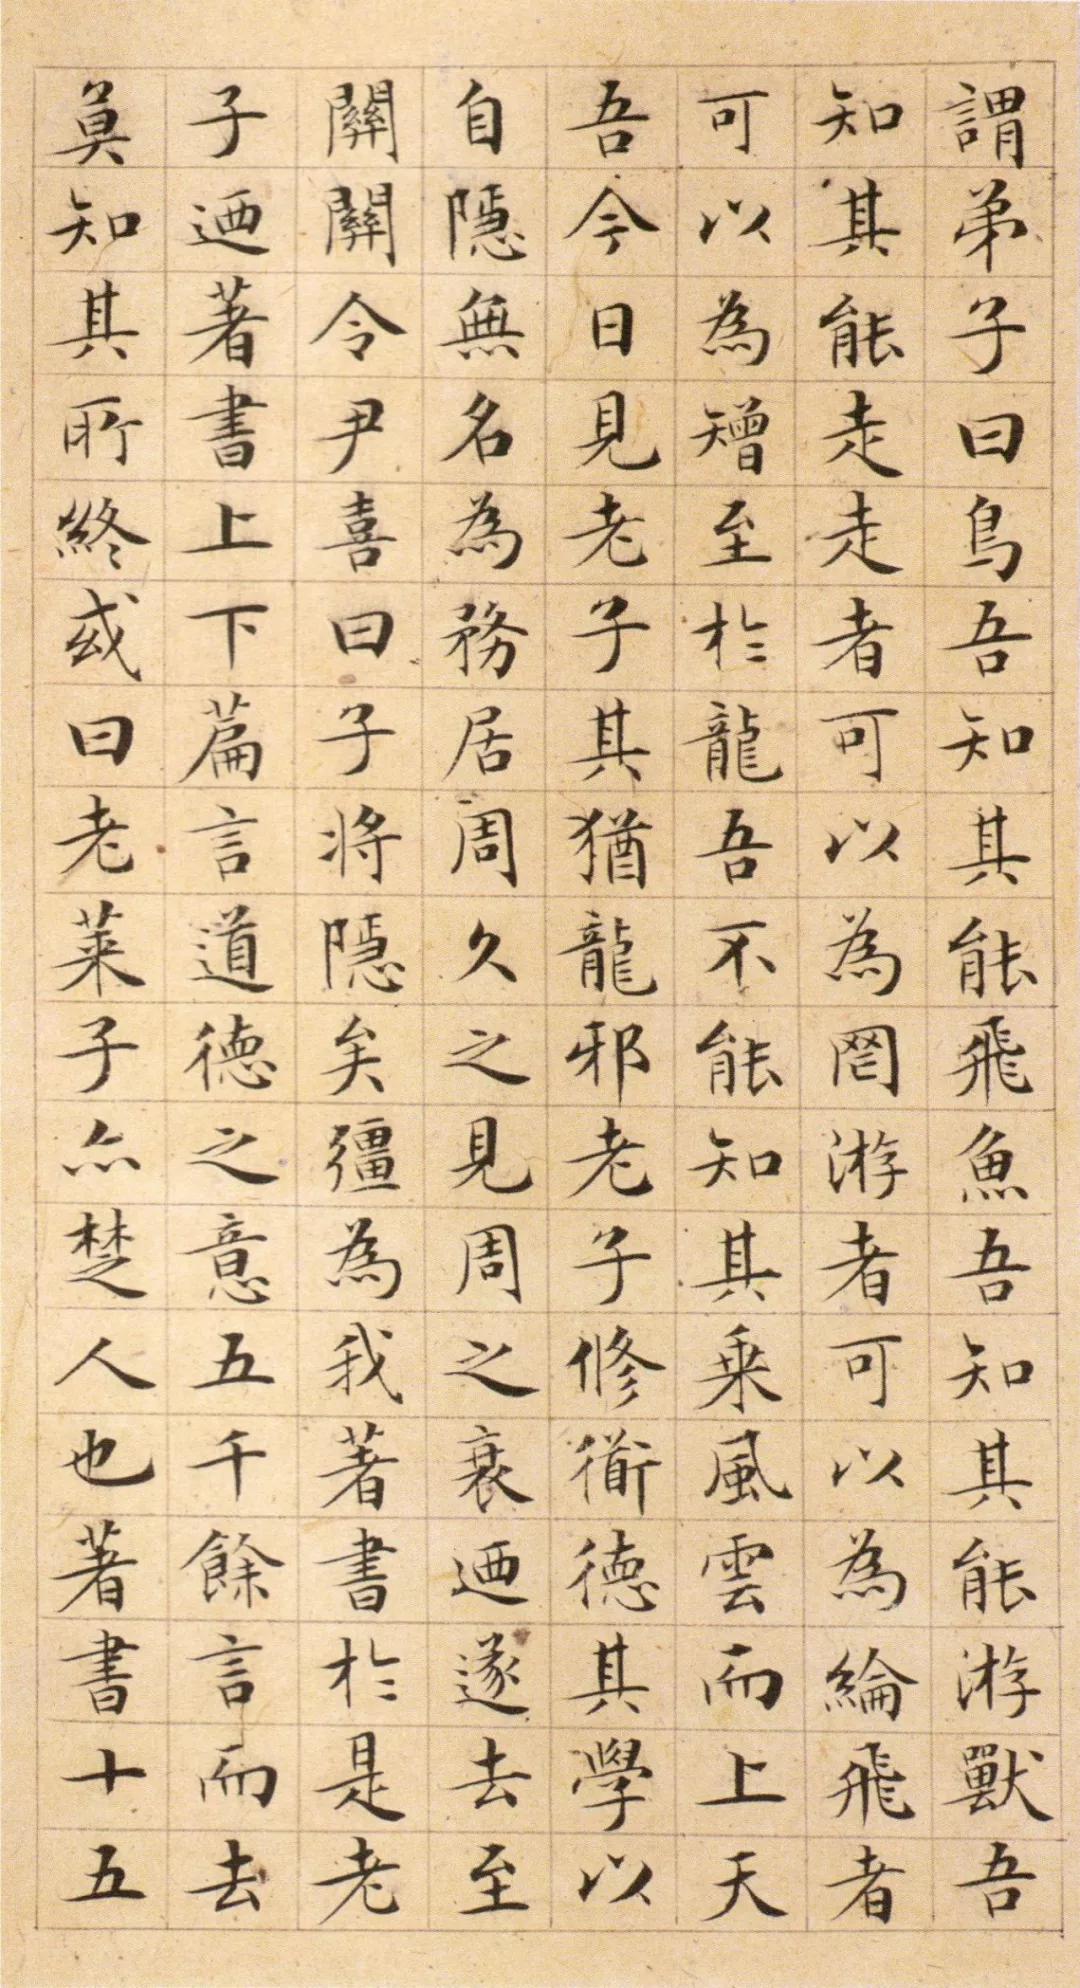 謂弟子曰鳥吾知其能飛魚吾知其能游獸吾
知其能走走者可以為罔游者可以為綸飛者
可以為矰至於龍吾不能知其乘風雲而上天
吾今日見老子其猶龍邪老子修衜德其學以
自隱無名為務居周久之見周之衰迺遂去至
關關令尹喜曰子將隱矣彊為我著書於是老
子迺著書上下篇言道德之意五千餘言而去
莫知其所終或曰老萊子亦楚人也著書十五